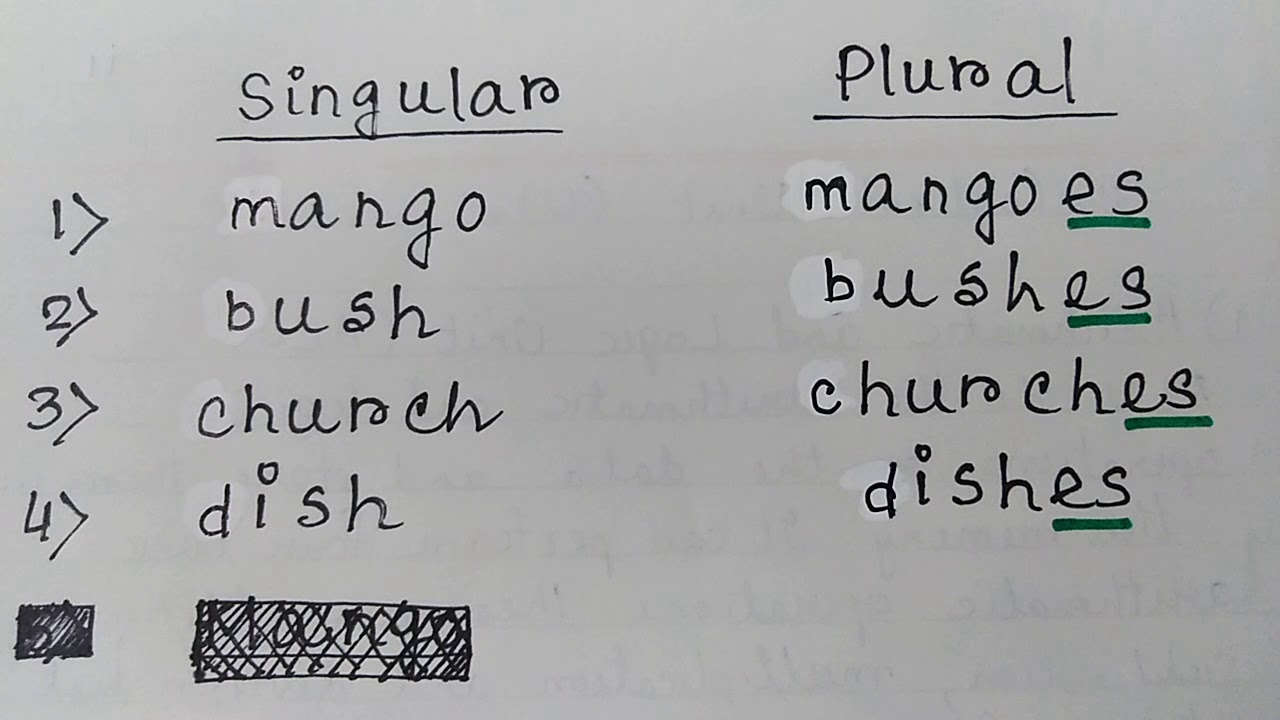 Singular Plural
1) mango mangoes
2) bush bushes
3) church churches
4) dish dishes